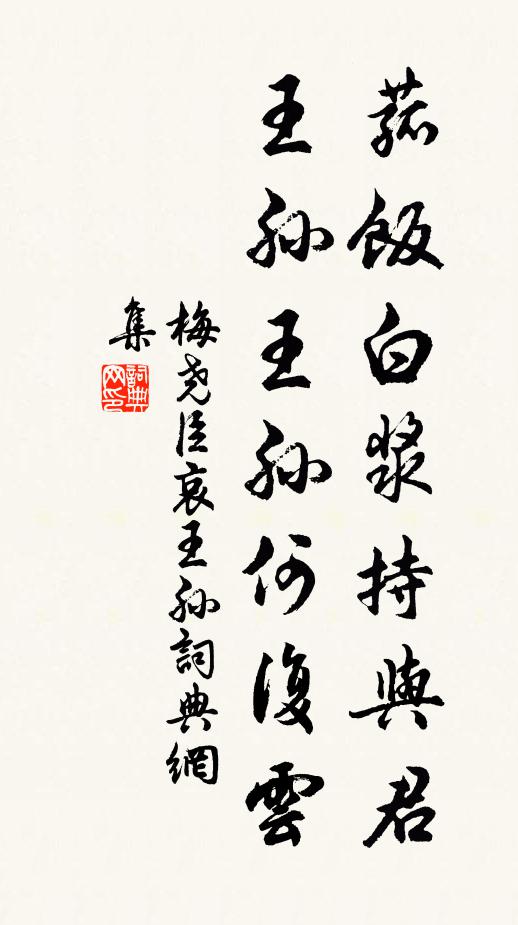 菰飯白漿持與君
王孫王孫何復雲
梅堯臣哀王孫詞典網
集
詞典网印